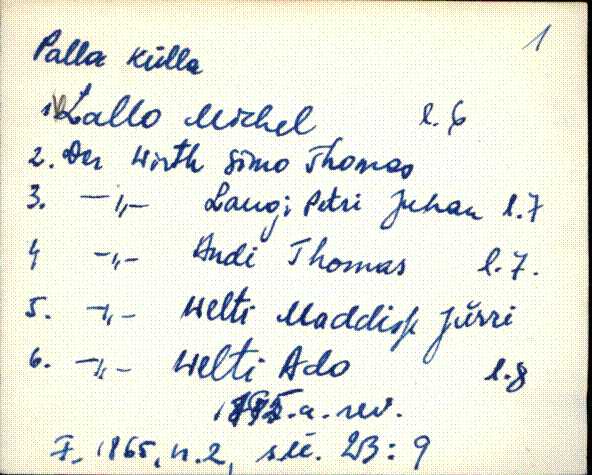 1
Palla külla
1) Lallo Michel l. 6
2. Der Wirth Simo Thomas
3. —„— Laugi Petri Juhan l. 7
4 —„— Andi Thomas l. 7.
5. —„— Welti Maddisse Jürri
6. —„— Welti Ado l. 8
1795. a. rev.
F. 1865, n. 2, sü. 2B: 9